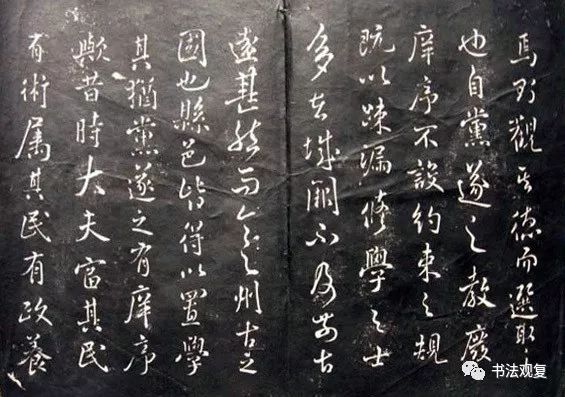 焉觀其德而選取之
也自黨遂之教廢
庠序不設約束之規
既以疎漏修學之士
多在城闕不及前古
遠甚然而今之州古之
國也縣邑皆得以置學
其猶黨遂之有庠序
歟昔時大夫富其民
有術屬其民有政養
书法观复